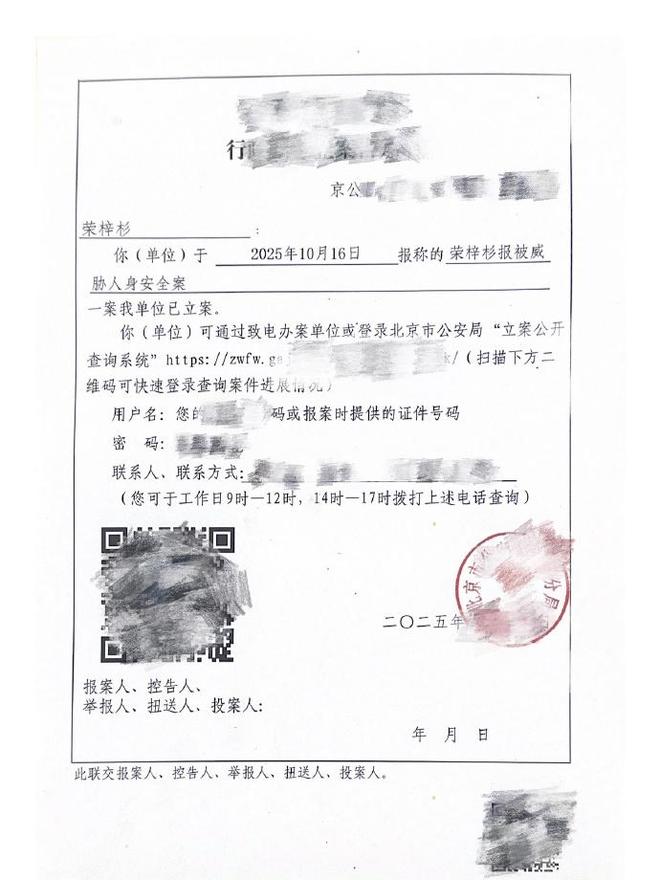 行
京公
荣梓杉 :
你（单位）于 2025年10月16日 报称的 荣梓杉报被威
胁人身安全案
一案我单位已立案。
你（单位）可通过致电办案单位或登录北京市公安局“立案公开
查询系统”https://zwfw.ga /（扫描下方二
维码可快速登录查询案件进展情况）
用户名：您的 码或报案时提供的证件号码
密 码：
联系人、联系方式：
（您可于工作日9时—12时，14时—17时拨打上述电话查询）
北京市 分局
二〇二五年
报案人、控告人、
举报人、扭送人、投案人：
年 月 日
此联交报案人、控告人、举报人、扭送人、投案人。